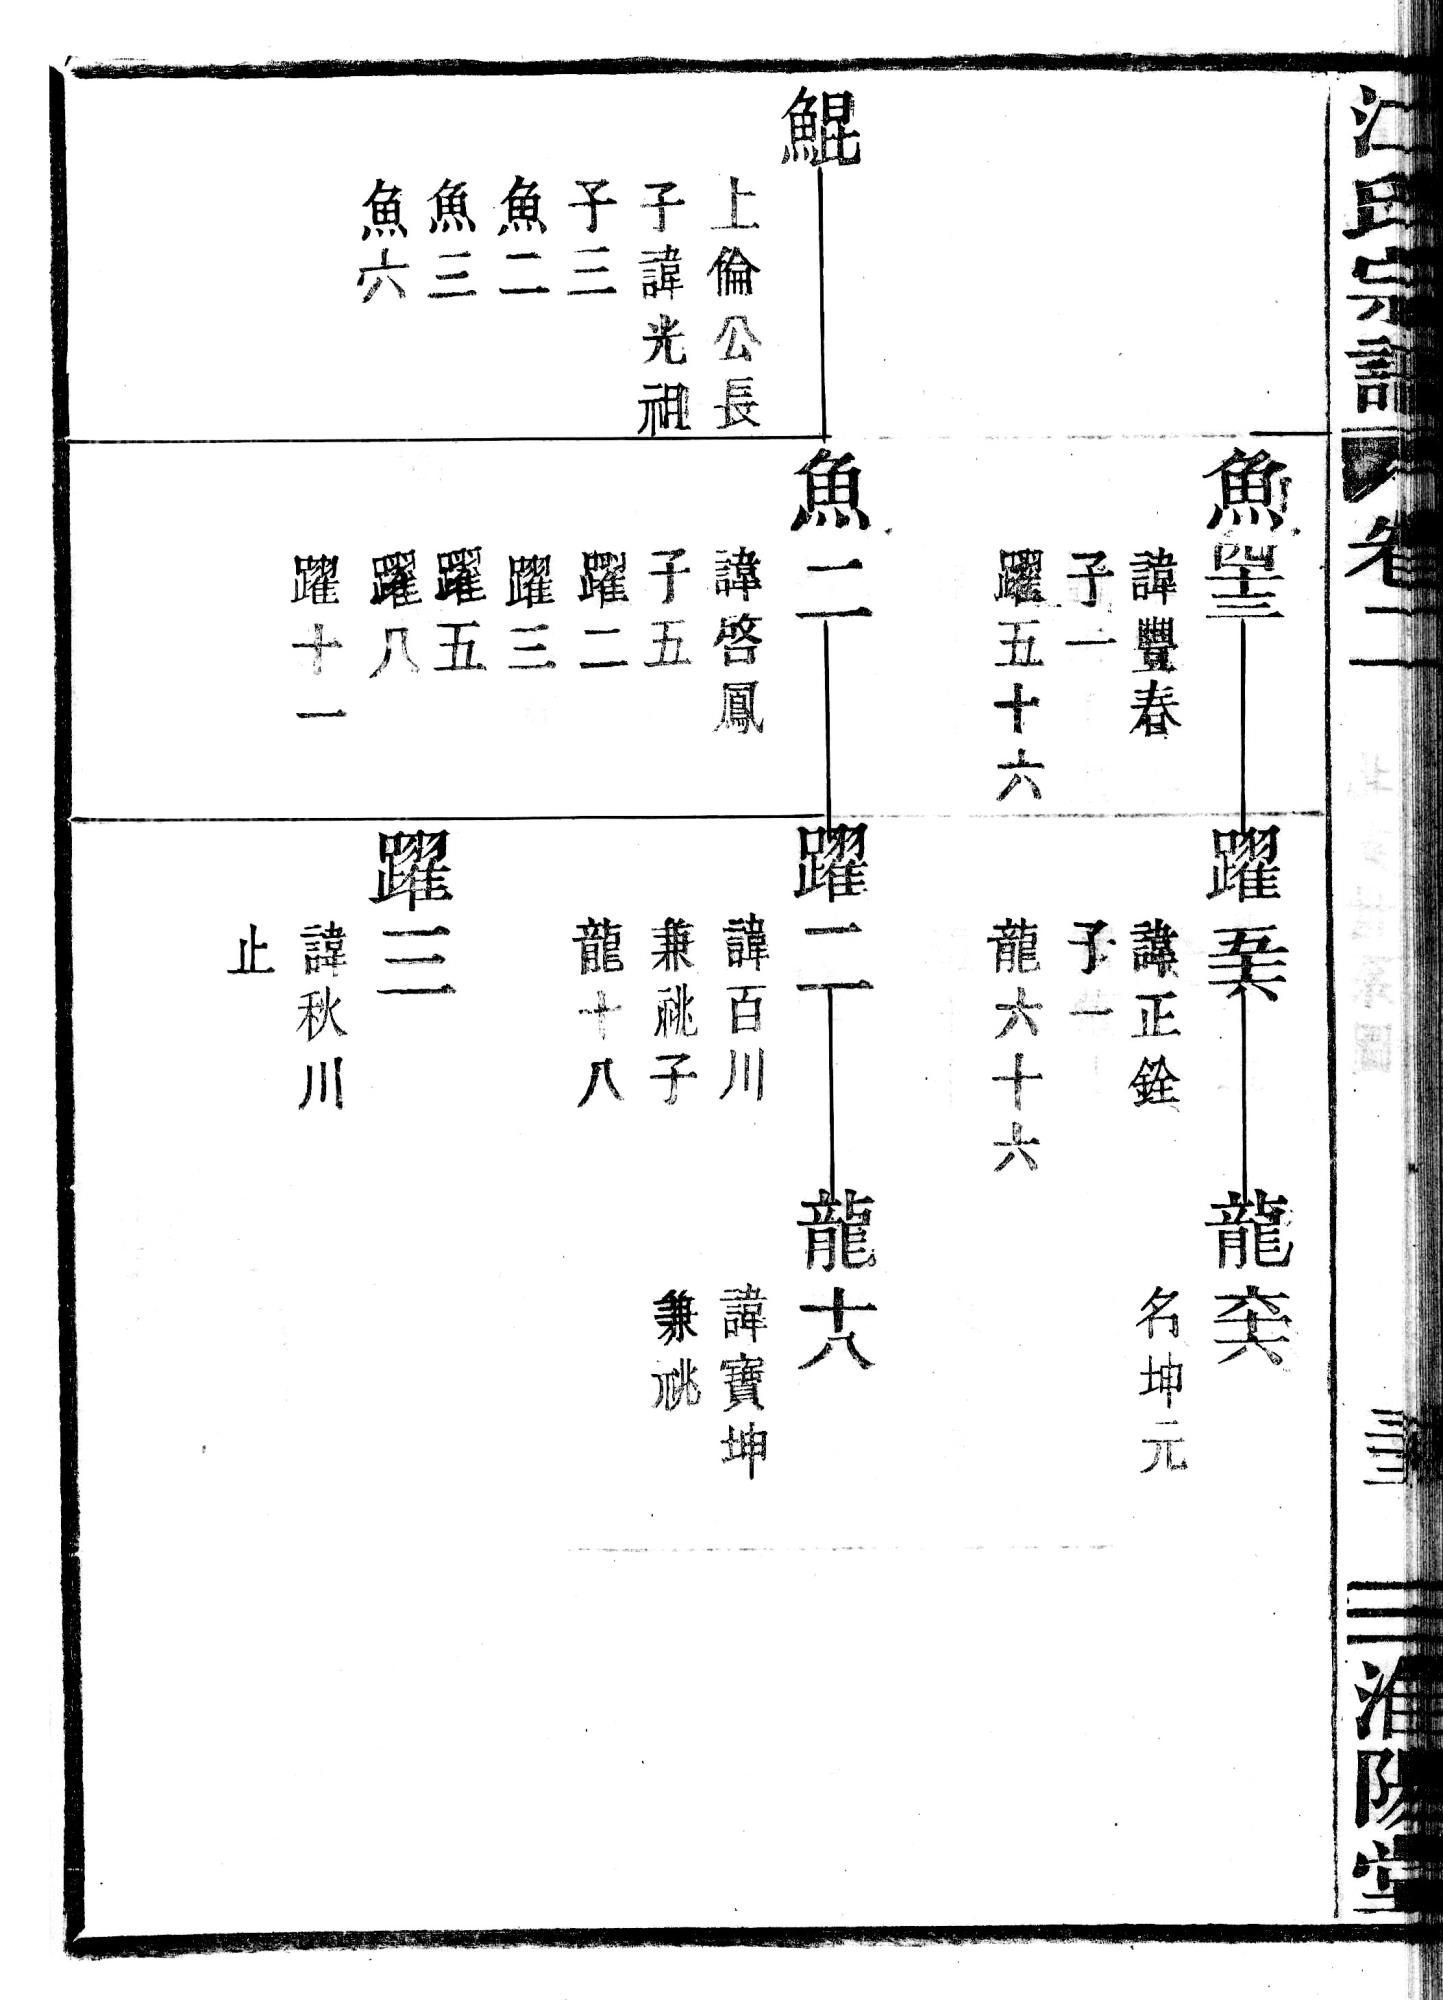 江氏宗譜
卷二
淮陽堂
魚四十三
諱豐春
子一
躍五十六
躍五十六
諱正銓
子一
龍六十六
龍六十六
名坤元
鯤
上倫公長
子諱光祖
子三
魚二
魚三
魚六
魚二
諱啓鳳
子五
躍二
躍三
躍五
躍八
躍十一
躍二
諱百川
兼祧子
龍十八
龍十八
諱寶坤
兼祧
躍三
諱秋川
止